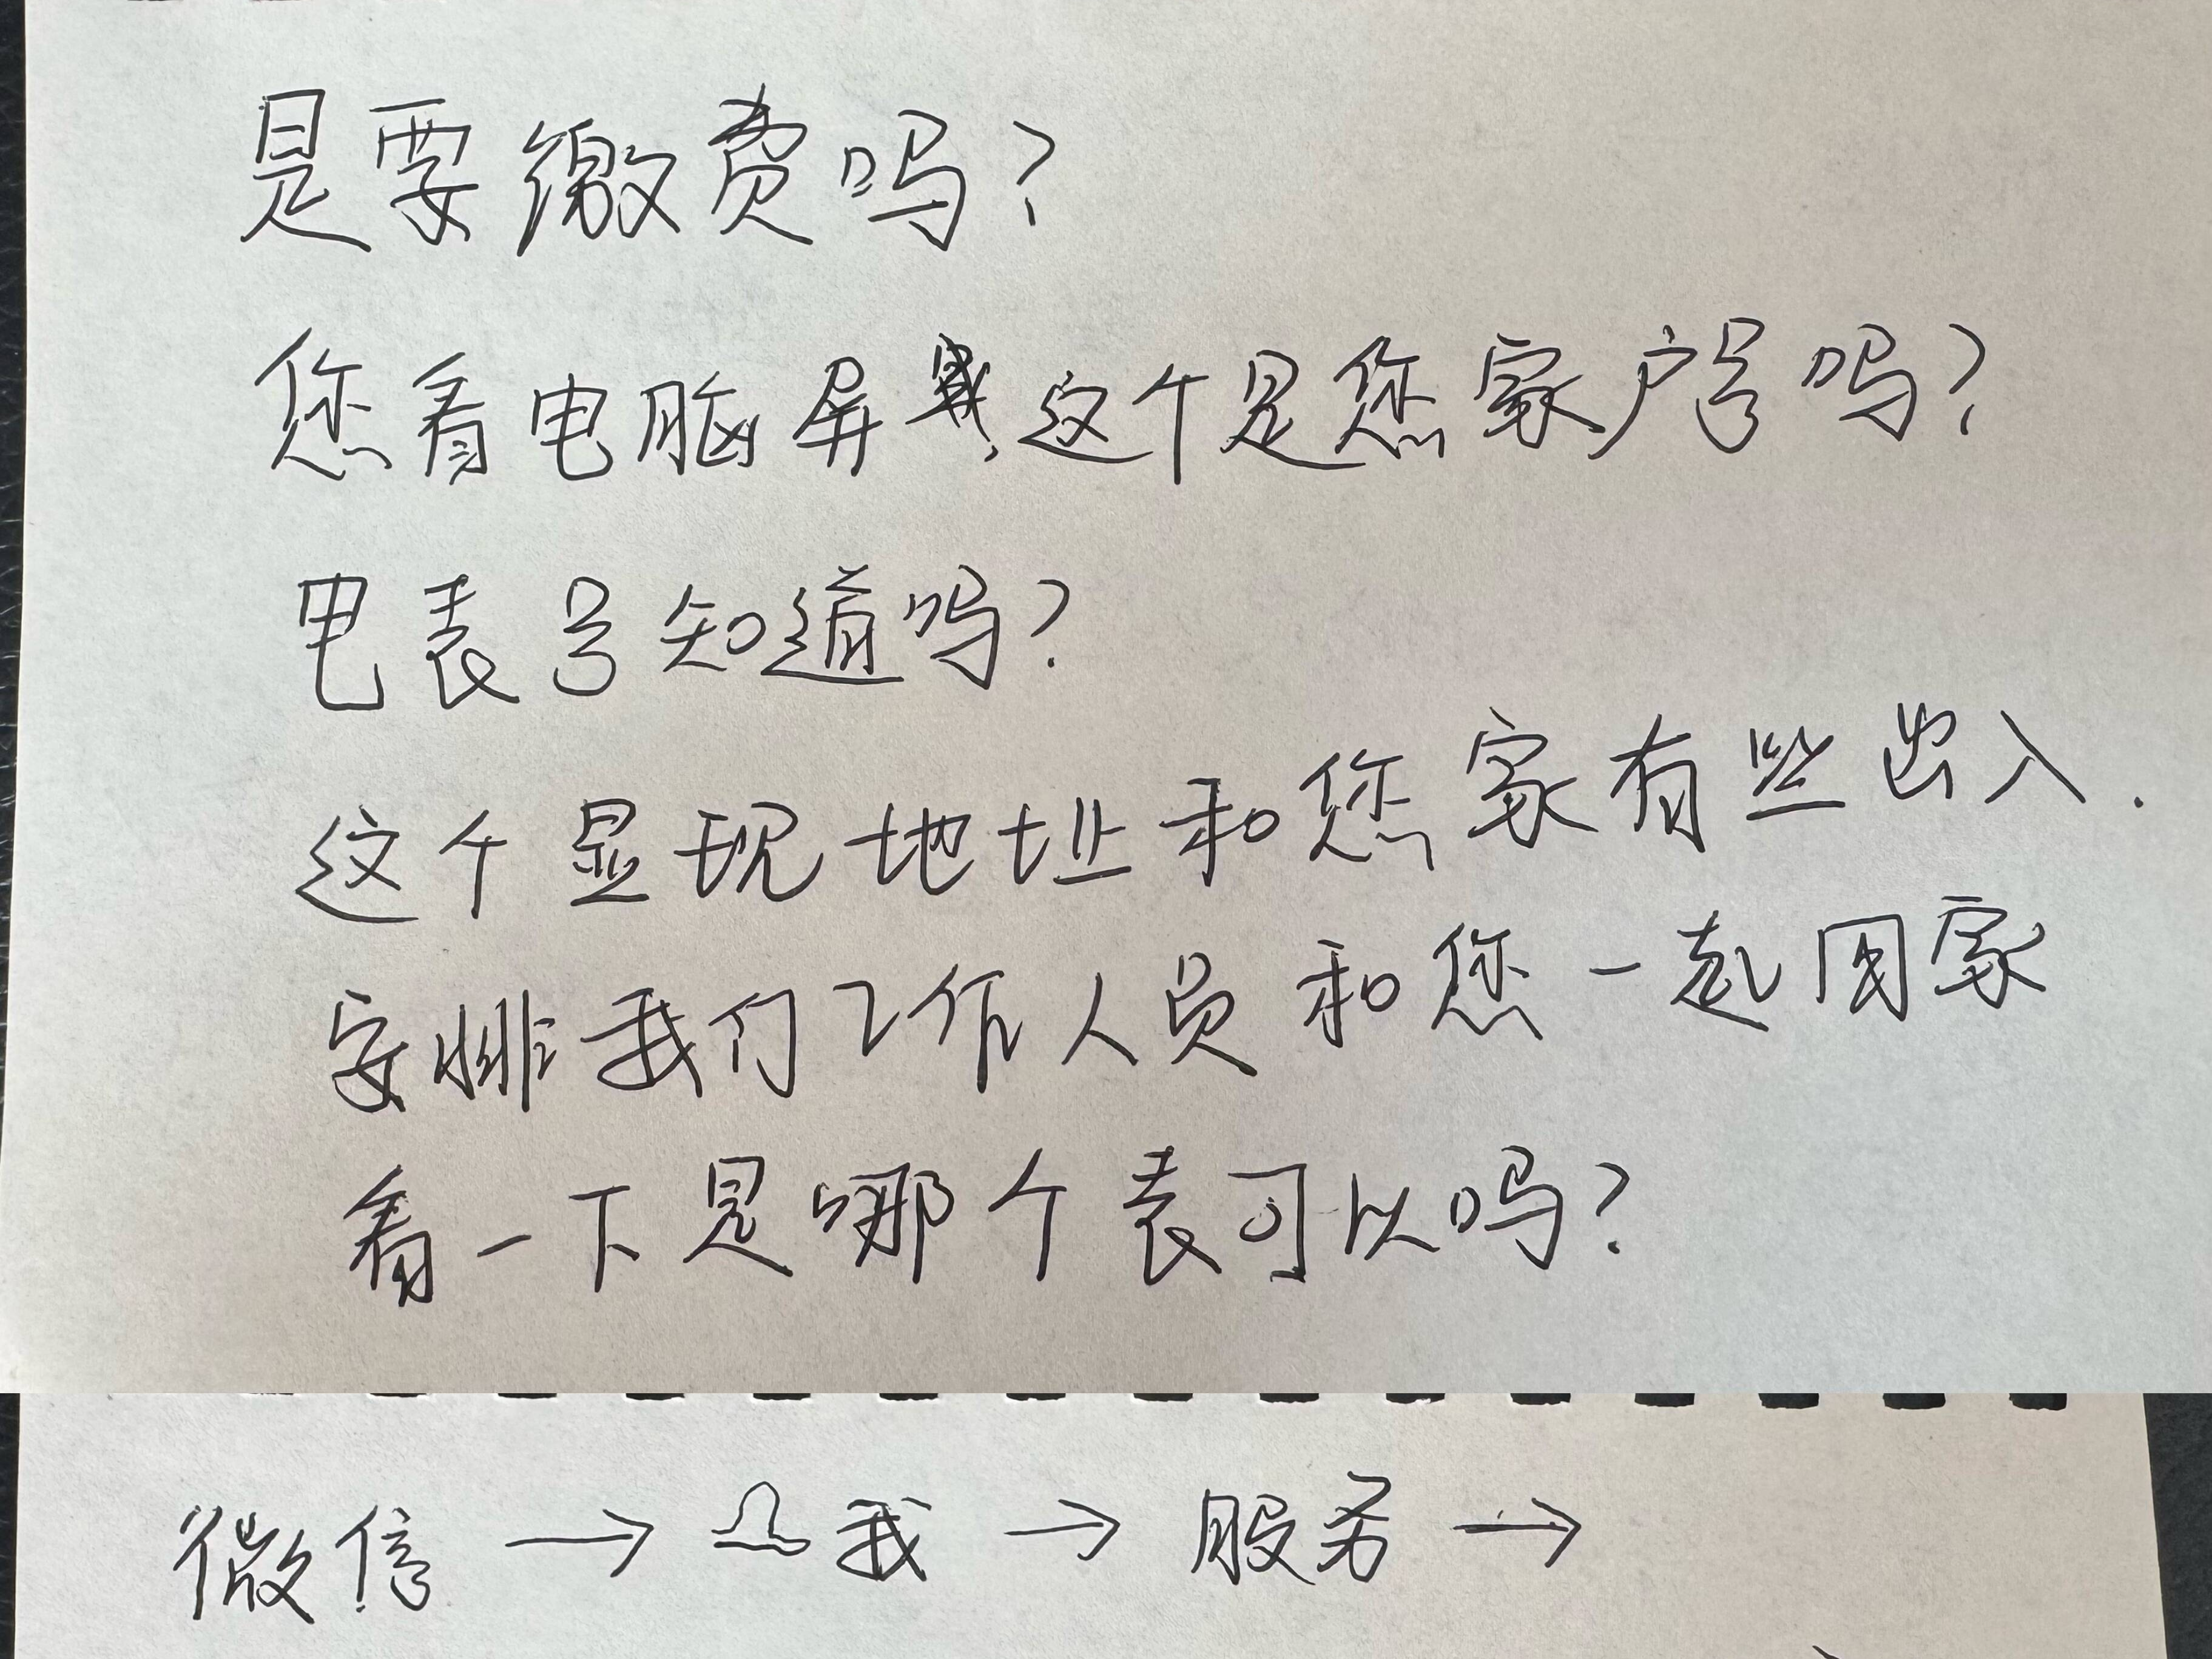 是要缴费吗?
您看电脑屏幕,这个是您家户号吗?
电表号知道吗?
这个显现地址和您家有些出入.
安排我们工作人员和您一起回家
看一下是哪个表可以吗?
微信 → 我 → 服务 →